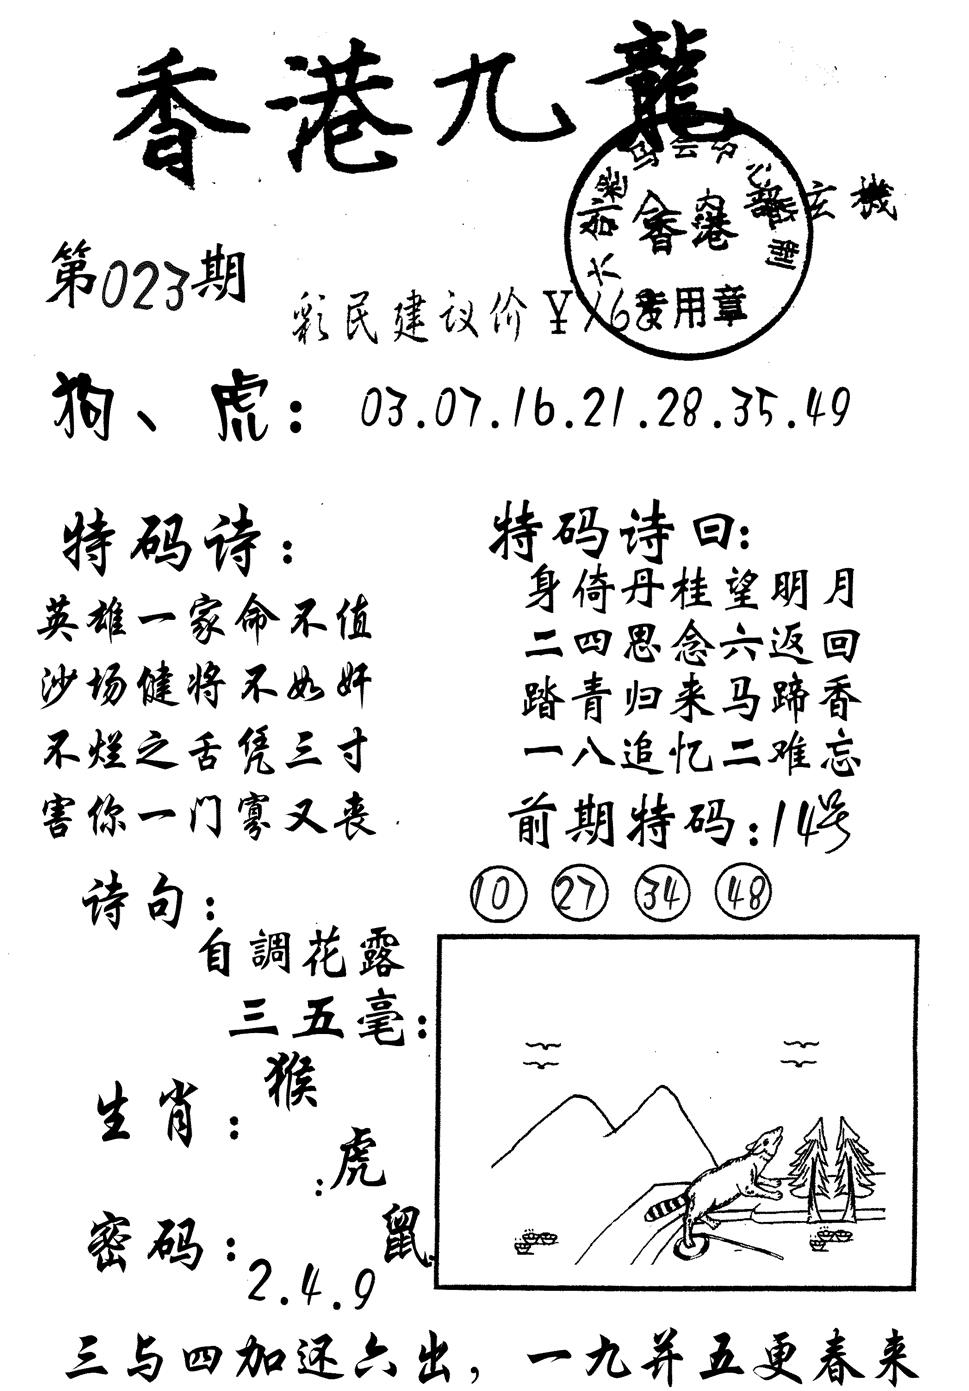 香港九龍
內部玄機
第023期
彩民建议价￥168
香港
专用章
狗、虎：03.07.16.21.28.35.49
特码诗：
英雄一家命不值
沙场健将不如奸
不烂之舌凭三寸
害你一门寡又丧
特码诗曰：
身倚丹桂望明月
二四思念六返回
踏青归来马蹄香
一八追忆二难忘
前期特码：14号
10 27 34 48
诗句：
自調花露
三五毫：
生肖：
猴
：虎
鼠
密码：
2.4.9
三与四加还六出，一九并五更春来